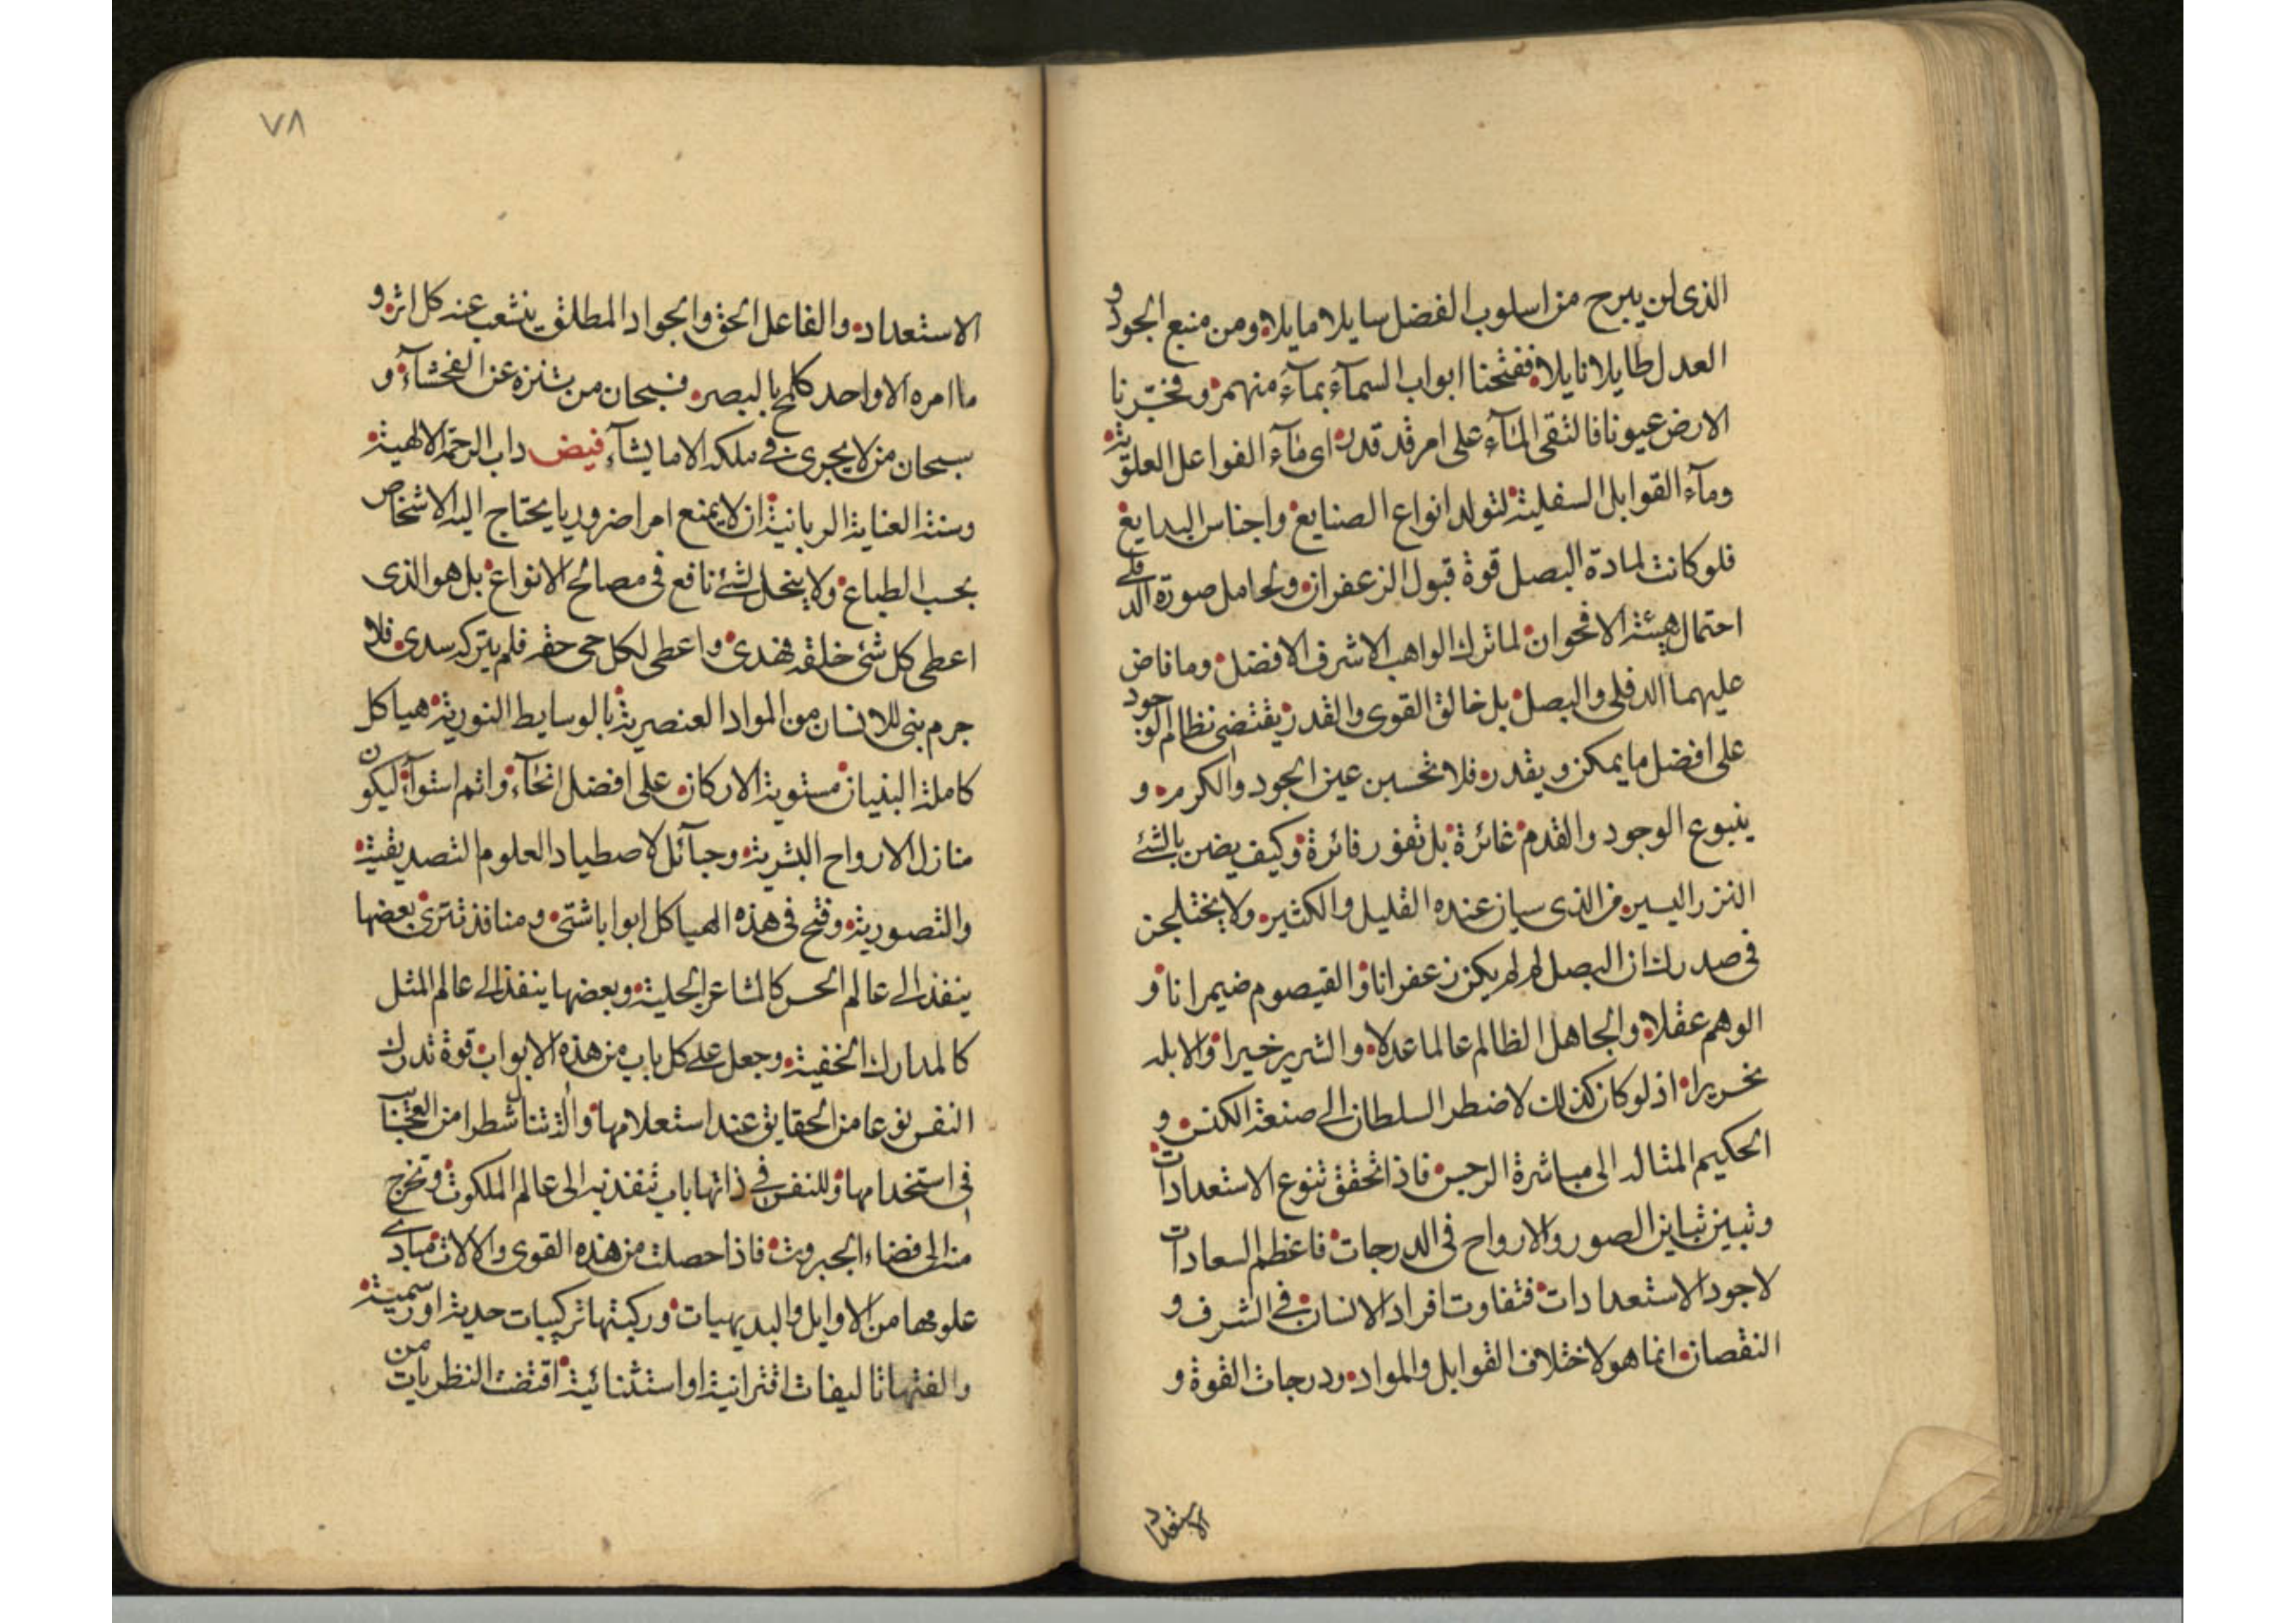 الذى لن يبرح من اسلوب الفضل سايلا مايلا ومن منبع الجود و
العدل طايلا نايلا ففتحنا ابواب السمآء بمآء منهمر وفجّرنا
الارض عيونا فالتقى المآء على امر قد قدر اى مآء الفواعل العلوية
ومآء القوابل السفلية لتولد انواع الصنايع واجناس البدايع
فلو كانت لمادة البصل قوة قبول الزعفران ولحامل صورة الدفلى
احتمال هيئة الاقحوان لما ترك الواهب الاشرف الافضل وما فاض
عليهما الدفلى والبصل بل خالق القوى والقدر يقتضى نظام الوجود
على افضل ما يمكن ويقدر فلا تحسبن عين الجود والكرم و
ينبوع الوجود والقدم غائرة بل تفور فائرة وكيف يضن بالشئ
النزر اليسير من الذى سيان عنده القليل والكثير ولا يختلجن
فى صدرك ان البصل لم لم يكن زعفرانا والقيصوم ضيمرانا و
الوهم عقلا والجاهل الظالم عالما عدلا والشرير خيرا والابله
نحريرا اذ لو كان كذلك لاضطر السلطان الى صنعة الكنس و
الحكيم المتاله الى مباشرة الرجس فاذا تحقق تنوع الاستعدادات
وتبين تباين الصور والارواح فى الدرجات فاعظم السعادات
لاجود الاستعدادات فتفاوت افراد الانسان فى الشرف و
النقصان انما هو لاختلاف القوابل والمواد ودرجات القوة و
الاستعداد
٧٨
الاستعداد والفاعل الحق والجواد المطلق ينشعب عنه كل اثر و
ما امره الا واحد كلمح بالبصر فسبحان من تنزه عن الفحشآء و
سبحان من لا يجرى فى ملكه الا ما يشآء فيض داب الرحمة الالهية
وسنة العناية الربانية ان لا يمنع امرا ضروريا يحتاج اليه الاشخاص
بحسب الطباع ولا يبخل لشئ نافع فى مصالح الانواع بل هو الذى
اعطى كل شئ خلقه فهدى واعطى لكل حى حقه فلم يتركه سدى فلا
جرم بنى للانسان من المواد العنصرية بالوسايط النورية هياكل
كاملة البنيان مستوية الاركان على افضل انحآء واتم استوآء ليكون
منازل الارواح البشرية وحبآئل لاصطياد العلوم التصديقية
والتصورية وفتح فى هذه الهياكل ابوابا شتى ومنافذ تترى بعضها
ينفذ الى عالم الحس كالمشاعر الجلية وبعضها ينفذ الى عالم المثل
كالمدارك الخفية وجعل على كل باب من هذه الابواب قوة تدرك
النفس نوعا من الحقايق عند استعلامها والذ تنال شطرا من العجائب
فى استخدامها وللنفس فى ذاتها باب تنفذ به الى عالم الملكوت وتخرج
منه الى فضاء الجبروت فاذا حصلت من هذه القوى والالات مبادى
علومها من الاوايل والبديهيات وركبتها تركيبات حدية او رسمية
والفتها تاليفات اقترانية او استثنائية اقتضت النظريات من